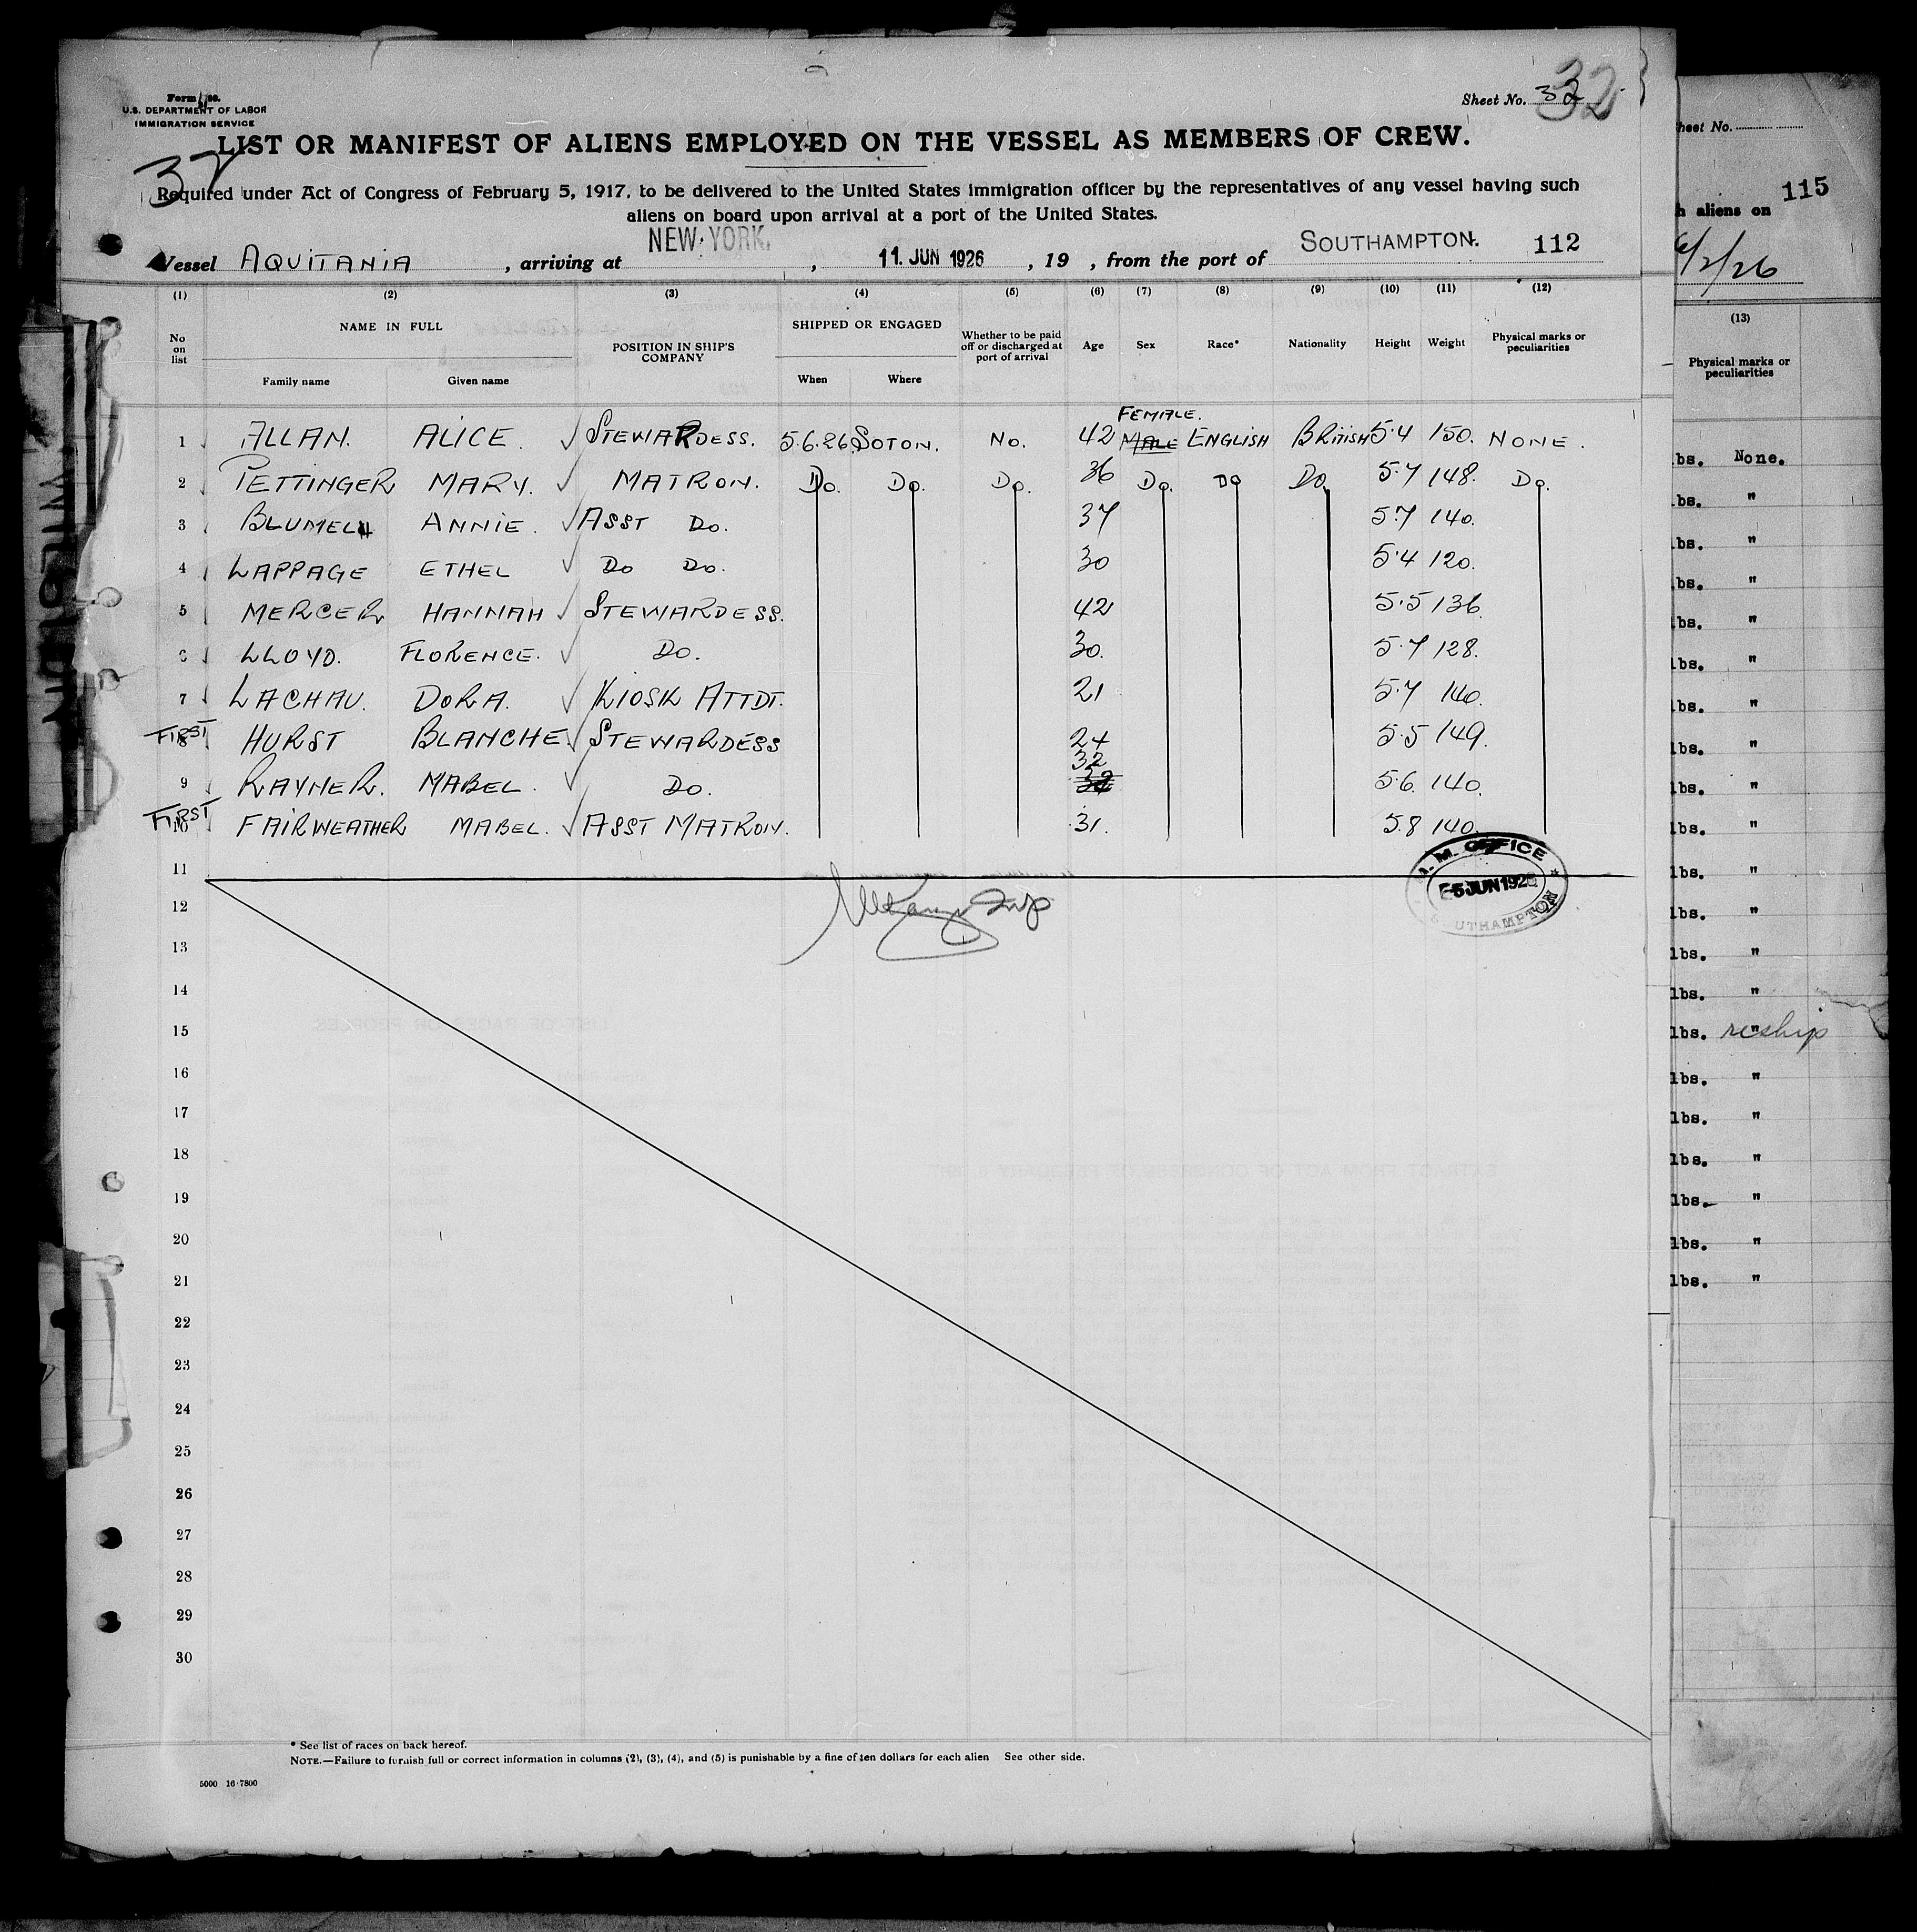 Sheet No. 32
32
U.S. DEPARTMENT OF LABOR
IMMIGRATION SERVICE
LIST OR MANIFEST OF ALIENS EMPLOYED ON THE VESSEL AS MEMBERS OF CREW.
37
Required under Act of Congress of February 5, 1917, to be delivered to the United States immigration officer by the representatives of any vessel having such
aliens on board upon arrival at a port of the United States.
Vessel AQUITANIA, arriving at NEW YORK, 11. JUN 1926, 19 , from the port of SOUTHAMPTON. 112
(1) (2) (3) (4) (5) (6) (7) (8) (9) (10) (11) (12)
No on list NAME IN FULL POSITION IN SHIP'S COMPANY SHIPPED OR ENGAGED Whether to be paid off or discharged at port of arrival Age Sex Race* Nationality Height Weight Physical marks or peculiarities
Family name Given name When Where
FEMALE.
1 ALLAN. ALICE. STEWARDESS. 5.6.26 SOTON. No. 42 MALE ENGLISH BRITISH 5.4 150. NONE.
2 PETTINGER MARY. MATRON. Do. Do. Do. 36 Do. Do Do. 5.7 148. Do.
3 BLUMEL ANNIE. ASST Do. 37 5.7 140.
4 LAPPAGE ETHEL Do Do. 30 5.4 120.
5 MERCER HANNAH STEWARDESS. 42 5.5 136.
6 LLOYD. FLORENCE. Do. 30. 5.7 128.
7 LACHAU. DORA. KIOSK ATTDT. 21 5.7 140.
FIRST 8 HURST BLANCHE. STEWARDESS 24 5.5 149.
32
9 RAYNER. MABEL. Do. 5.6. 140.
FIRST 10 FAIRWEATHER MABEL. ASST MATRON. 31. 5.8 140.
11
12
13
14
15
16
17
18
19
20
21
22
23
24
25
26
27
28
29
30
OFFICE
5 JUN 192
UTHAMPTON
* See list of races on back hereof.
NOTE.—Failure to furnish full or correct information in columns (2), (3), (4), and (5) is punishable by a fine of ten dollars for each alien See other side.
5000 16-7800
heet No.
115
h aliens on
/2/26
(13)
Physical marks or
peculiarities
lbs. None.
lbs. "
lbs. "
lbs. "
lbs. "
lbs. "
lbs. "
lbs. "
lbs. "
lbs. "
lbs. "
lbs. "
lbs. "
lbs. "
lbs. " reship
lbs. "
lbs. "
lbs. "
lbs. "
lbs. "
lbs. "